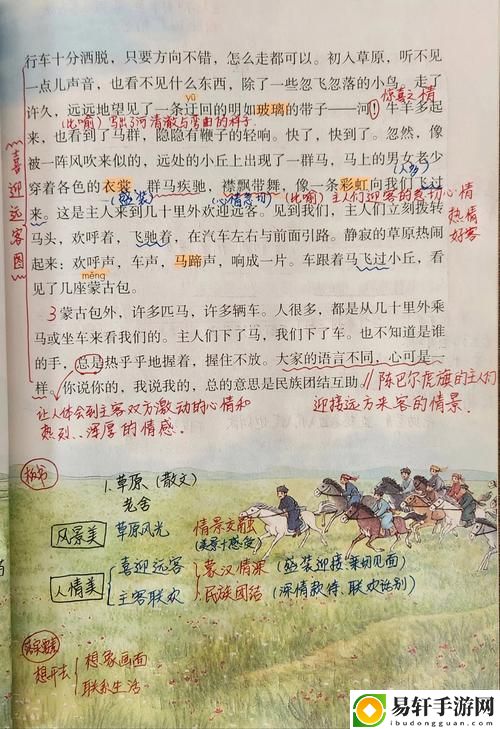 行车十分洒脱，只要方向不错，怎么走都可以。初入草原，听不见
一点儿声音，也看不见什么东西，除了一些忽飞忽落的小鸟。走了
许久，远远地望见了一条迂回的明如玻璃的带子——河！牛羊多起
yū
惊喜之情
(比喻)写出了河清澈与弯曲的样子
来，也看到了马群，隐隐有鞭子的轻响。快了，快到了。忽然，像
被一阵风吹来似的，远处的小丘上出现了一群马，马上的男女老少
(人多)
穿着各色的衣裳，群马疾驰，襟飘带舞，像一条彩虹向我们飞过
(盛装)
(心情急切)
(比喻)主人们迎客的急切心情
来。这是主人来到几十里外欢迎远客。见到我们，主人们立刻拨转
热情
好客
马头，欢呼着，飞驰着，在汽车左右与前面引路。静寂的草原热闹
起来：欢呼声，车声，马蹄声，响成一片。车跟着马飞过小丘，看
měng
见了几座蒙古包。
喜迎远客图
3蒙古包外，许多匹马，许多辆车。人很多，都是从几十里外乘
马或坐车来看我们的。主人们下了马，我们下了车。也不知道是谁
的手，总是热乎乎地握着，握住不放。大家的语言不同，心可是一
样。你说你的，我说我的，总的意思是民族团结互助。
//陈巴尔虎旗的主人们
迎接远方来客的情景.
让人体会到主客双方激动的心情和
热烈、深厚的情感.
板书
1.草原(散文)
老舍
风景美
草原风光
情景交融
(美景+感受)
人情美
喜迎远客
蒙汉情深
(盛装迎接、亲切见面)
主客联欢
民族团结
(深情款待、联欢话别)
想开去
想象画面
联系生活
易轩手游网
ibudongguan.com